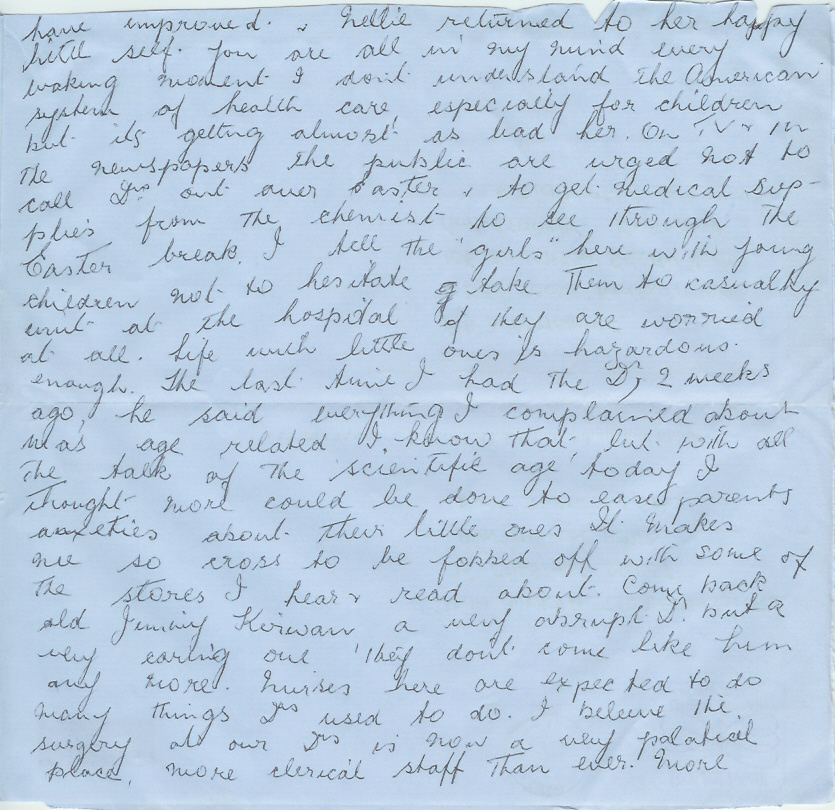 have improved. & Nellie returned to her happy
little self. You are all in my mind every
waking moment I don't understand the American
system of health care especially for children
but its getting almost as bad her. On TV & in
the newspapers the public are urged not to
call Drs out over Easter & to get medical sup-
plies from the chemist to see through the
Easter break. I tell the "girls" here with young
children not to hesitate & take them to casualty
unit at the hospital if they are worried
at all. Life with little ones is hazardous
enough. The last time I had the Dr, 2 weeks
ago, he said everything I complained about
was age related I know that but with all
the talk of the 'scientific age' today I
thought more could be done to ease parents
anxieties about their little ones It makes
me so cross to be fobbed off with some of
the stores I hear & read about. Come back
old Jimmy Kirwan a very abrupt Dr. but a
very caring one 'they don't come like him
any more. Nurses here are expected to do
many things Drs used to do. I believe the
surgery at our Drs is now a very palatical
place, more clerical staff than ever. More